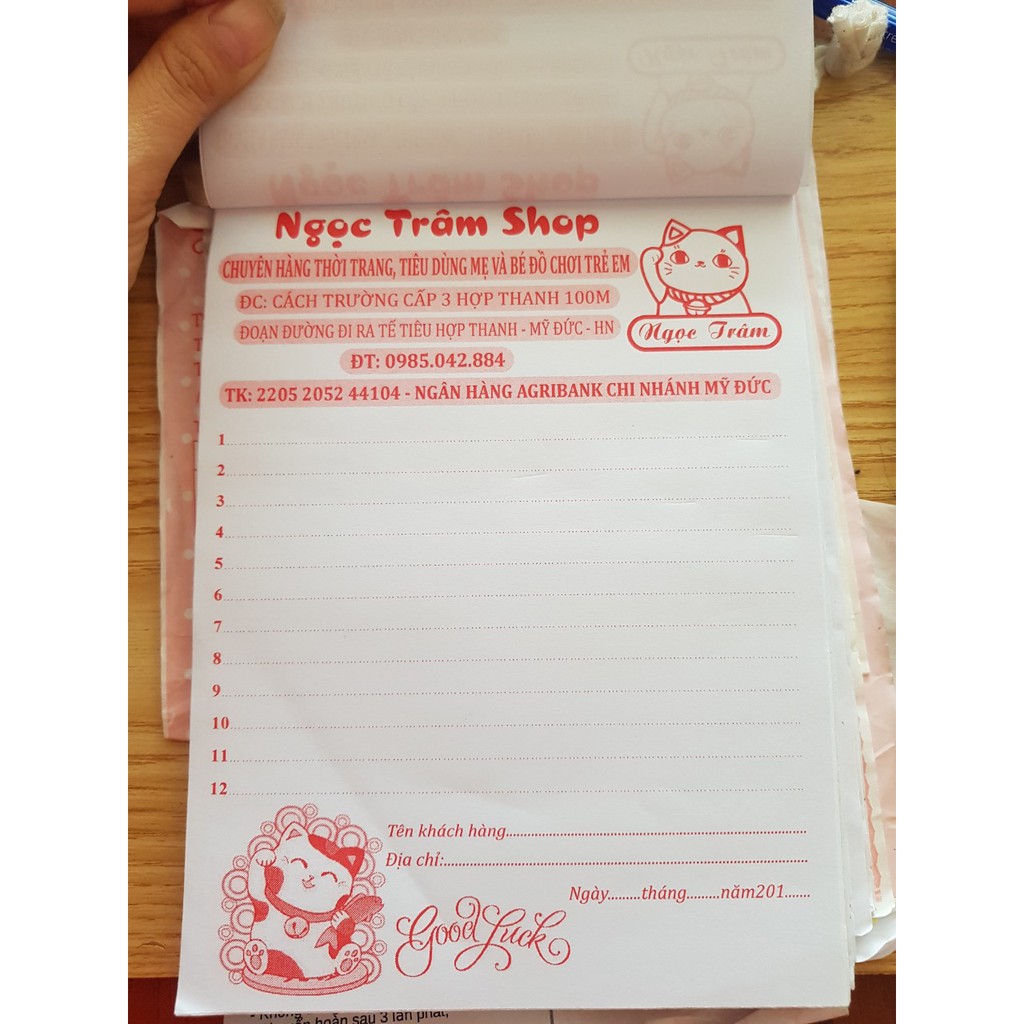 Ngọc Trâm Shop
CHUYÊN HÀNG THỜI TRANG, TIÊU DÙNG MẸ VÀ BÉ ĐỒ CHƠI TRẺ EM
ĐC: CÁCH TRƯỜNG CẤP 3 HỢP THANH 100M
ĐOẠN ĐƯỜNG ĐI RA TẾ TIÊU HỢP THANH - MỸ ĐỨC - HN
Ngọc Trâm
ĐT: 0985.042.884
TK: 2205 2052 44104 - NGÂN HÀNG AGRIBANK CHI NHÁNH MỸ ĐỨC
1
2
3
4
5
6
7
8
9
10
11
12
Tên khách hàng
Địa chỉ:
Ngày.........tháng.........năm201.......
Good Luck
- Không
hoãn sau 3 lần phát,